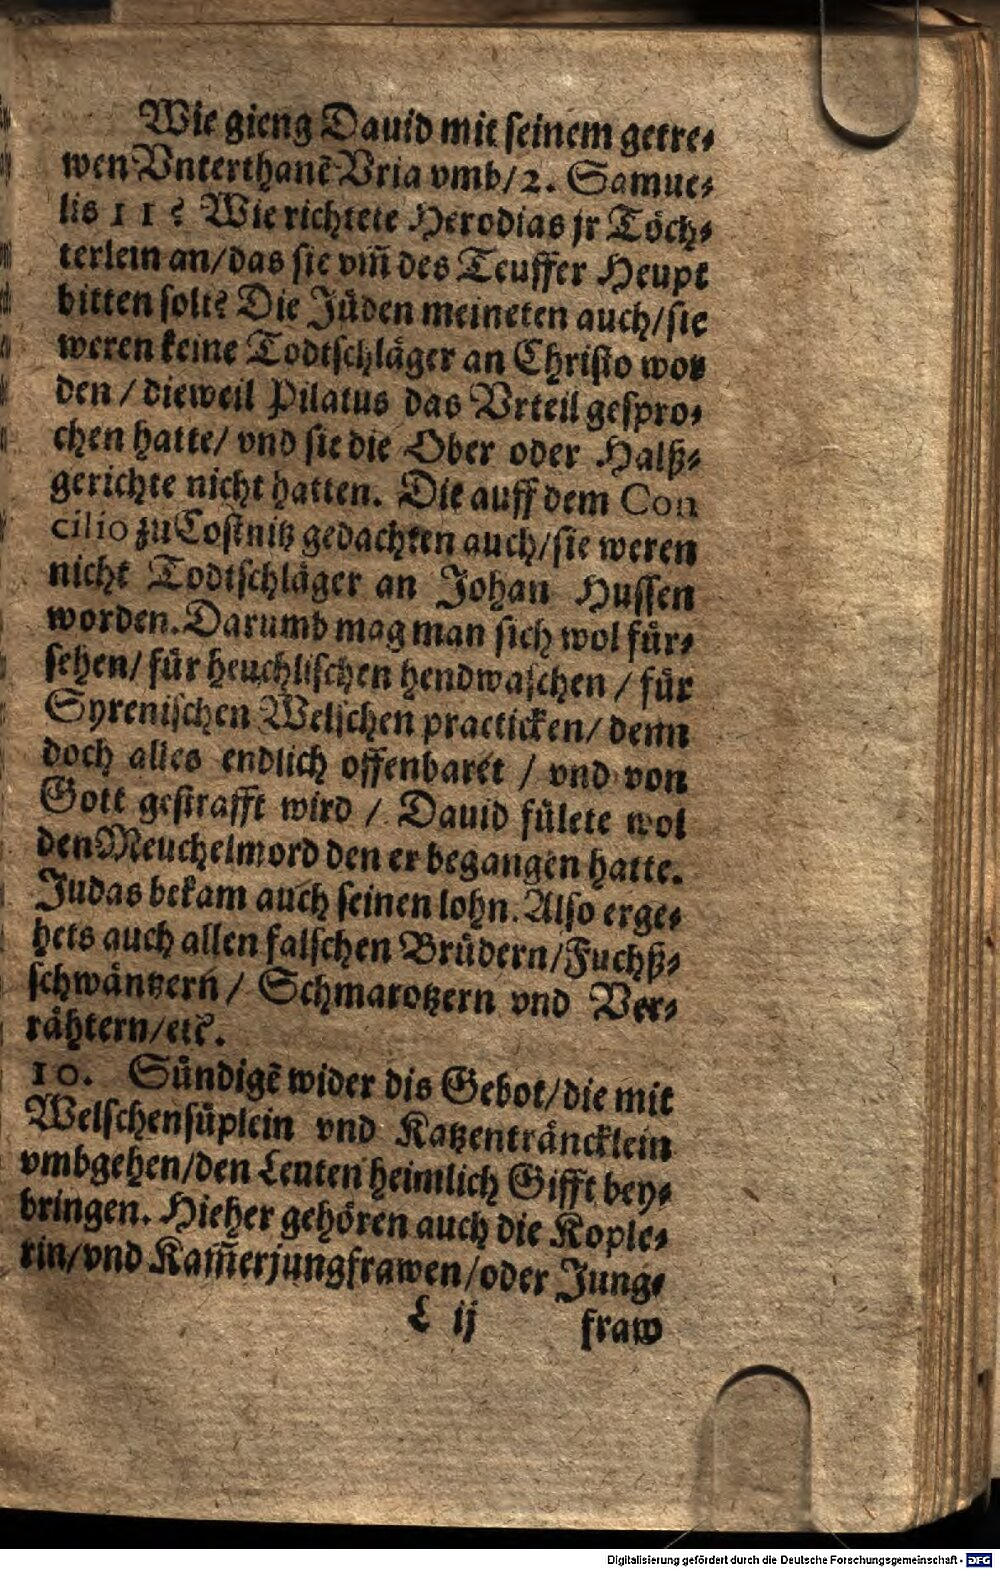 Wie gieng Dauid mit seinem getre-
wen Vnterthanē Vria vmb/2. Samue-
lis 11? Wie richtete Herodias jr Töch-
terlein an/das sie vm̄ des Teuffer Heupt
bitten solt? Die Jüden meineten auch/sie
weren keine Todtschläger an Christo wor
den / dieweil Pilatus das Vrteil gespro-
chen hatte/ vnd sie die Ober oder Halß-
gerichte nicht hatten. Die auff dem Con
cilio zu Costnitz gedachten auch/sie weren
nicht Todtschläger an Johan Hussen
worden. Darumb mag man sich wol für-
sehen/ für heuchlischen hendwaschen / für
Syrenischen Welschen practicken/ denn
doch alles endlich offenbaret / vnd von
Gott gestrafft wird / Dauid fülete wol
den Meuchelmord den er begangen hatte.
Judas bekam auch seinen lohn. Also erge-
hets auch allen falschen Brüdern/Fuchß-
schwäntzern / Schmarotzern vnd Ver-
rähtern/etc.
10. Sündigē wider dis Gebot/die mit
Welschensüplein vnd Katzenträncklein
vmbgehen/den Leuten heimlich Gifft bey-
bringen. Hieher gehören auch die Kople-
rin/vnd Kam̄erjungfrawen/oder Jung-
L ij fraw
Digitalisierung gefördert durch die Deutsche Forschungsgemeinschaft - DFG